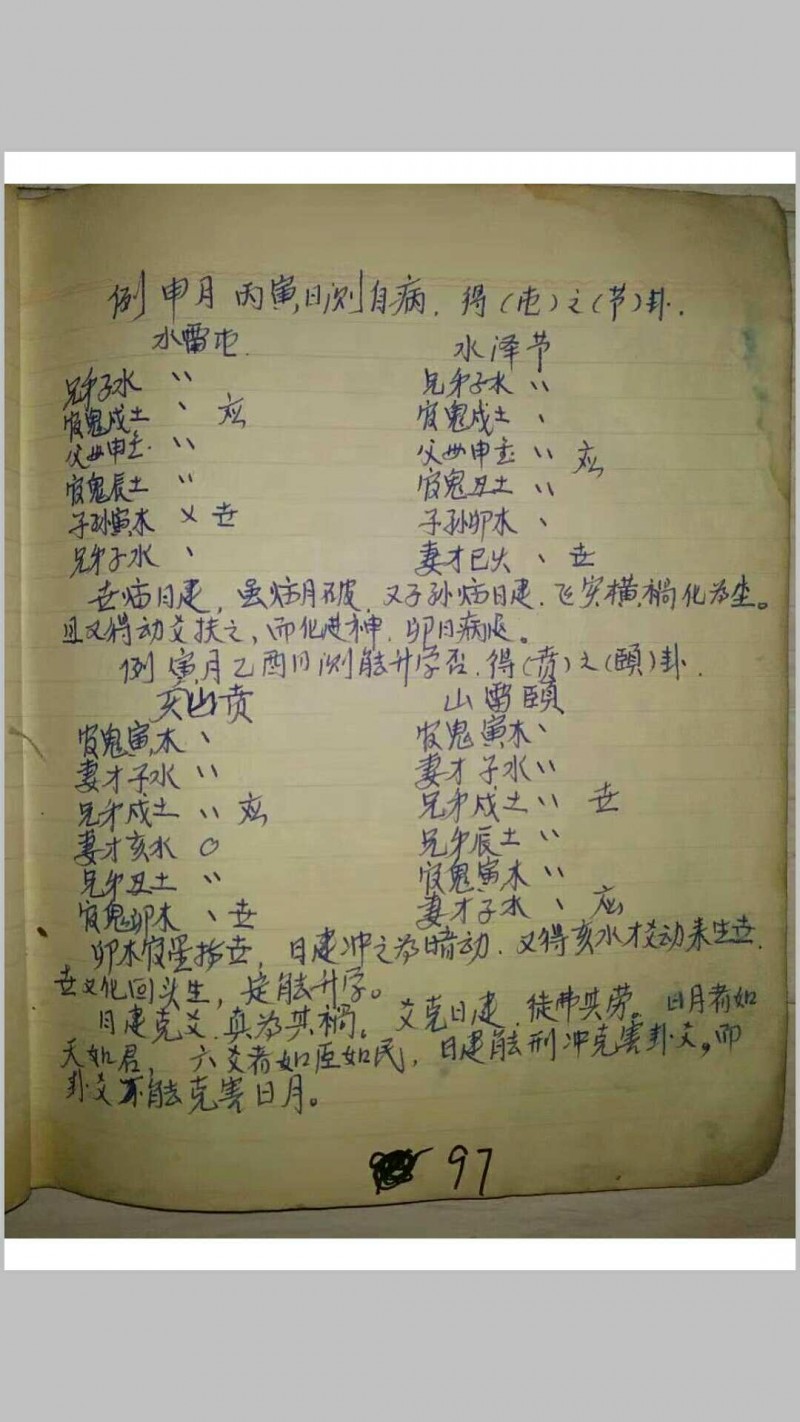 例 申月 丙寅日测自病. 得(屯)之(节)卦.
水雷屯. 水泽节
兄弟子水 〃 兄弟子水 〃
官鬼戌土 、 应 官鬼戌土 、
父母申金. 〃 父母申金 〃 应
官鬼辰土 〃 官鬼丑土 〃
子孙寅木 × 世 子孙卯木 、
兄弟子水 、 妻才巳火 、 世
世临日建, 虽临月破, 又子孙临日建. 飞实横祸化为尘。
且又得动爻扶之, 而化进神, 卯日病退。
例 寅月乙酉日测能升学否. 得(贲)之(頤)卦.
山贲 山雷頤
官鬼寅木 、 官鬼寅木 、
妻才子水 〃 妻才子水 〃
兄弟戌土 〃 应 兄弟戌土 〃 世
妻才亥水 ○ 兄弟辰土 〃
兄弟丑土 〃 官鬼寅木 〃
官鬼卯木 、世 妻才子水 、 应
卯木官星持世, 日建冲之为暗动. 又得亥水才爻动来生世.
世爻化回头生, 定能升学。
日建克爻. 真为其祸。 爻克日建. 徒弗其劳。 日月者如
天如君, 六爻者如臣如民, 日建能刑冲克害卦爻, 而
卦爻不能克害日月。
97